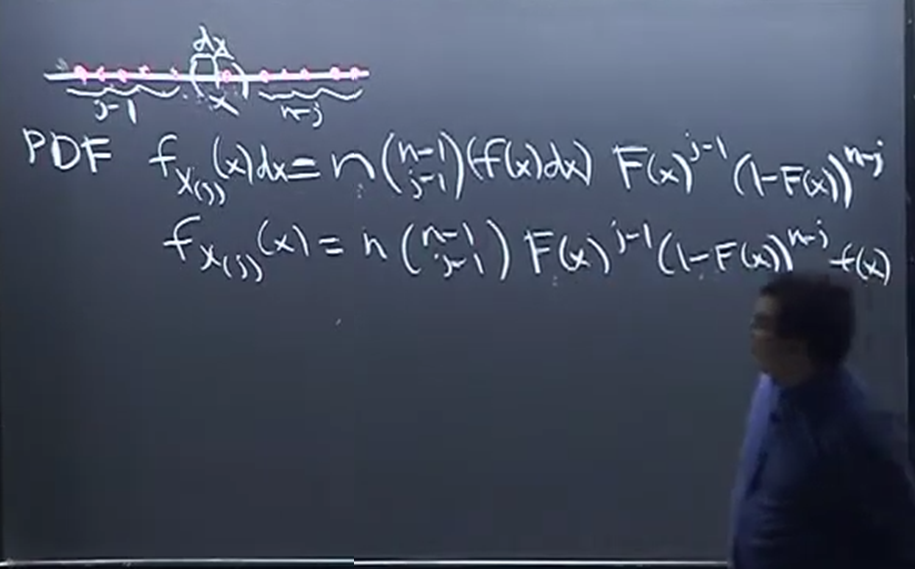 dx
j-1 x n-j
PDF f_{X_{(j)}}(x)dx = n \binom{n-1}{j-1} (f(x)dx) F(x)^{j-1} (1-F(x))^{n-j}
f_{X_{(j)}}(x) = n \binom{n-1}{j-1} F(x)^{j-1} (1-F(x))^{n-j} f(x)